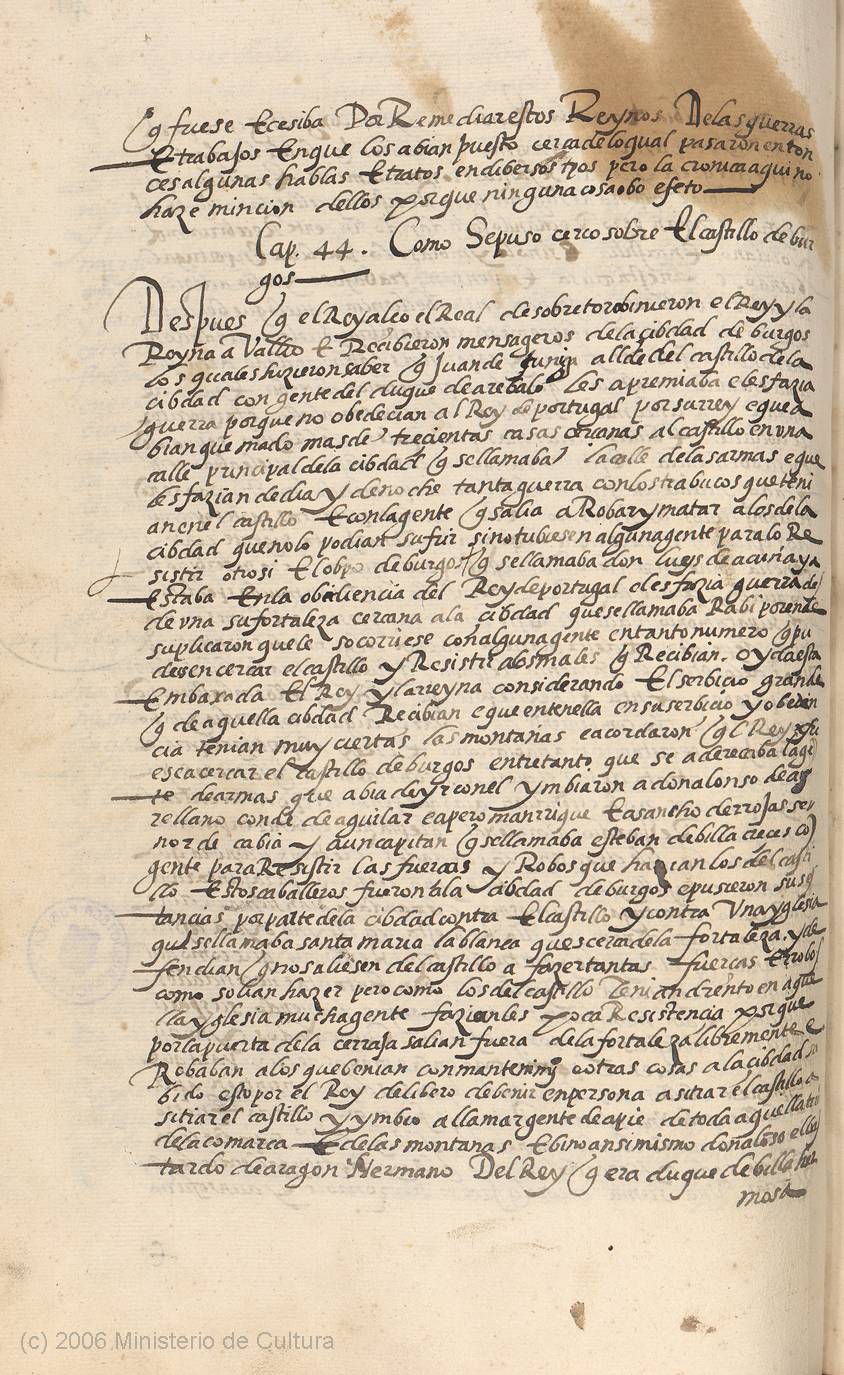 q fuese Ecesiba Por Remediar estos Reynos De las guerras
E trabajos En que los abian puesto cerca de lo qual pasaron enton
ces algunas hablas E tratos en dibersos tpos pero la cronica aqui no
haze mincion dellos porque ninguna cosa obo efeto
Cap. 44. Como Se puso cerco sobre El castillo de bur
gos
Despues q el Rey alço el Real de sobre toro binieron el Rey y la
Reyna a Vallid E Recibieron mensageros de la cibdad de burgos
los quales hizieron saber q Juan de allde del castillo de la
cibdad con gente del duque de arebalo les apremiaba e les fazia
guerra porque no obedecian al Rey de portugal por su rrey e que a
bian quemado mas de trecientas casas cercanas al castillo en vna
calle principal de la cibdad q se llamaba la calle de las armas e que
les fazian de dia y de noche tanta guerra con los trabucos que teni
an en el castillo E con la gente q salia a Robar y matar a los de la
cibdad que no lo podian sufrir si no tubiesen alguna gente para lo Re
sistir otrosi El obpo de burgos q se llamaba don luys de acuña ya
Estaba En la obidiencia del Rey de portugal e les fazia guerra des
de vna su fortaleza cercana a la cibdad que se llamaba Rabi por ende
suplicaron que le socorriese con alguna gente en tanto numero q pu
diesen cercar el castillo y Resistir a los males q Recibian. Oyda esta
Embaxada El Rey y la rreyna considerando El serbicio grande
q de aquella cibdad Recibian e que en tenella en su serbicio y obedien
cia tenian muy ciertas las montañas e acordaron q el Rey fu
ese a cercar el castillo de burgos entretanto que se adereçaba la gē
te de armas que abia de yr con el ynbiaron a don alonso de are
rellano conde de aguilar e a pero manrrique E a sancho de rrojas se
ñor de cabia y a un capitan q se llamaba esteban de billa creces co
gente para Resistir las fuerças y Robos que hazian los del casti
llo Estos caballeros fueron a la cibdad de burgos e pusieron sus es
tancias por parte de la cibdad contra El castillo y contra Vna yglesia
que se llamaba santa maria la blanca que es cerca de la fortaleza. y de
fendian q no saliesen del castillo a fazer tantas fuercas E robos
como solian hazer pero como los del castillo Tenian dentro en aque
lla yglesia mucha gente fazianles poca Resistencia porque
por la puerta de la cerraja salian fuera de la fortaleza libremente e
Robaban a los que benian con mantenimys e otras cosas a la cibdad sa
bido esto por el Rey delibero de benir en persona a sitiar el castillo
sitiar el castillo y ymbio a llamar gente de a pie de toda aquella
de la comarca E de las montañas E bino ansimismo don aloso el bas
tardo de aragon Hermano Del Rey q era duque de billa her
mosa
(c) 2006 Ministerio de Cultura